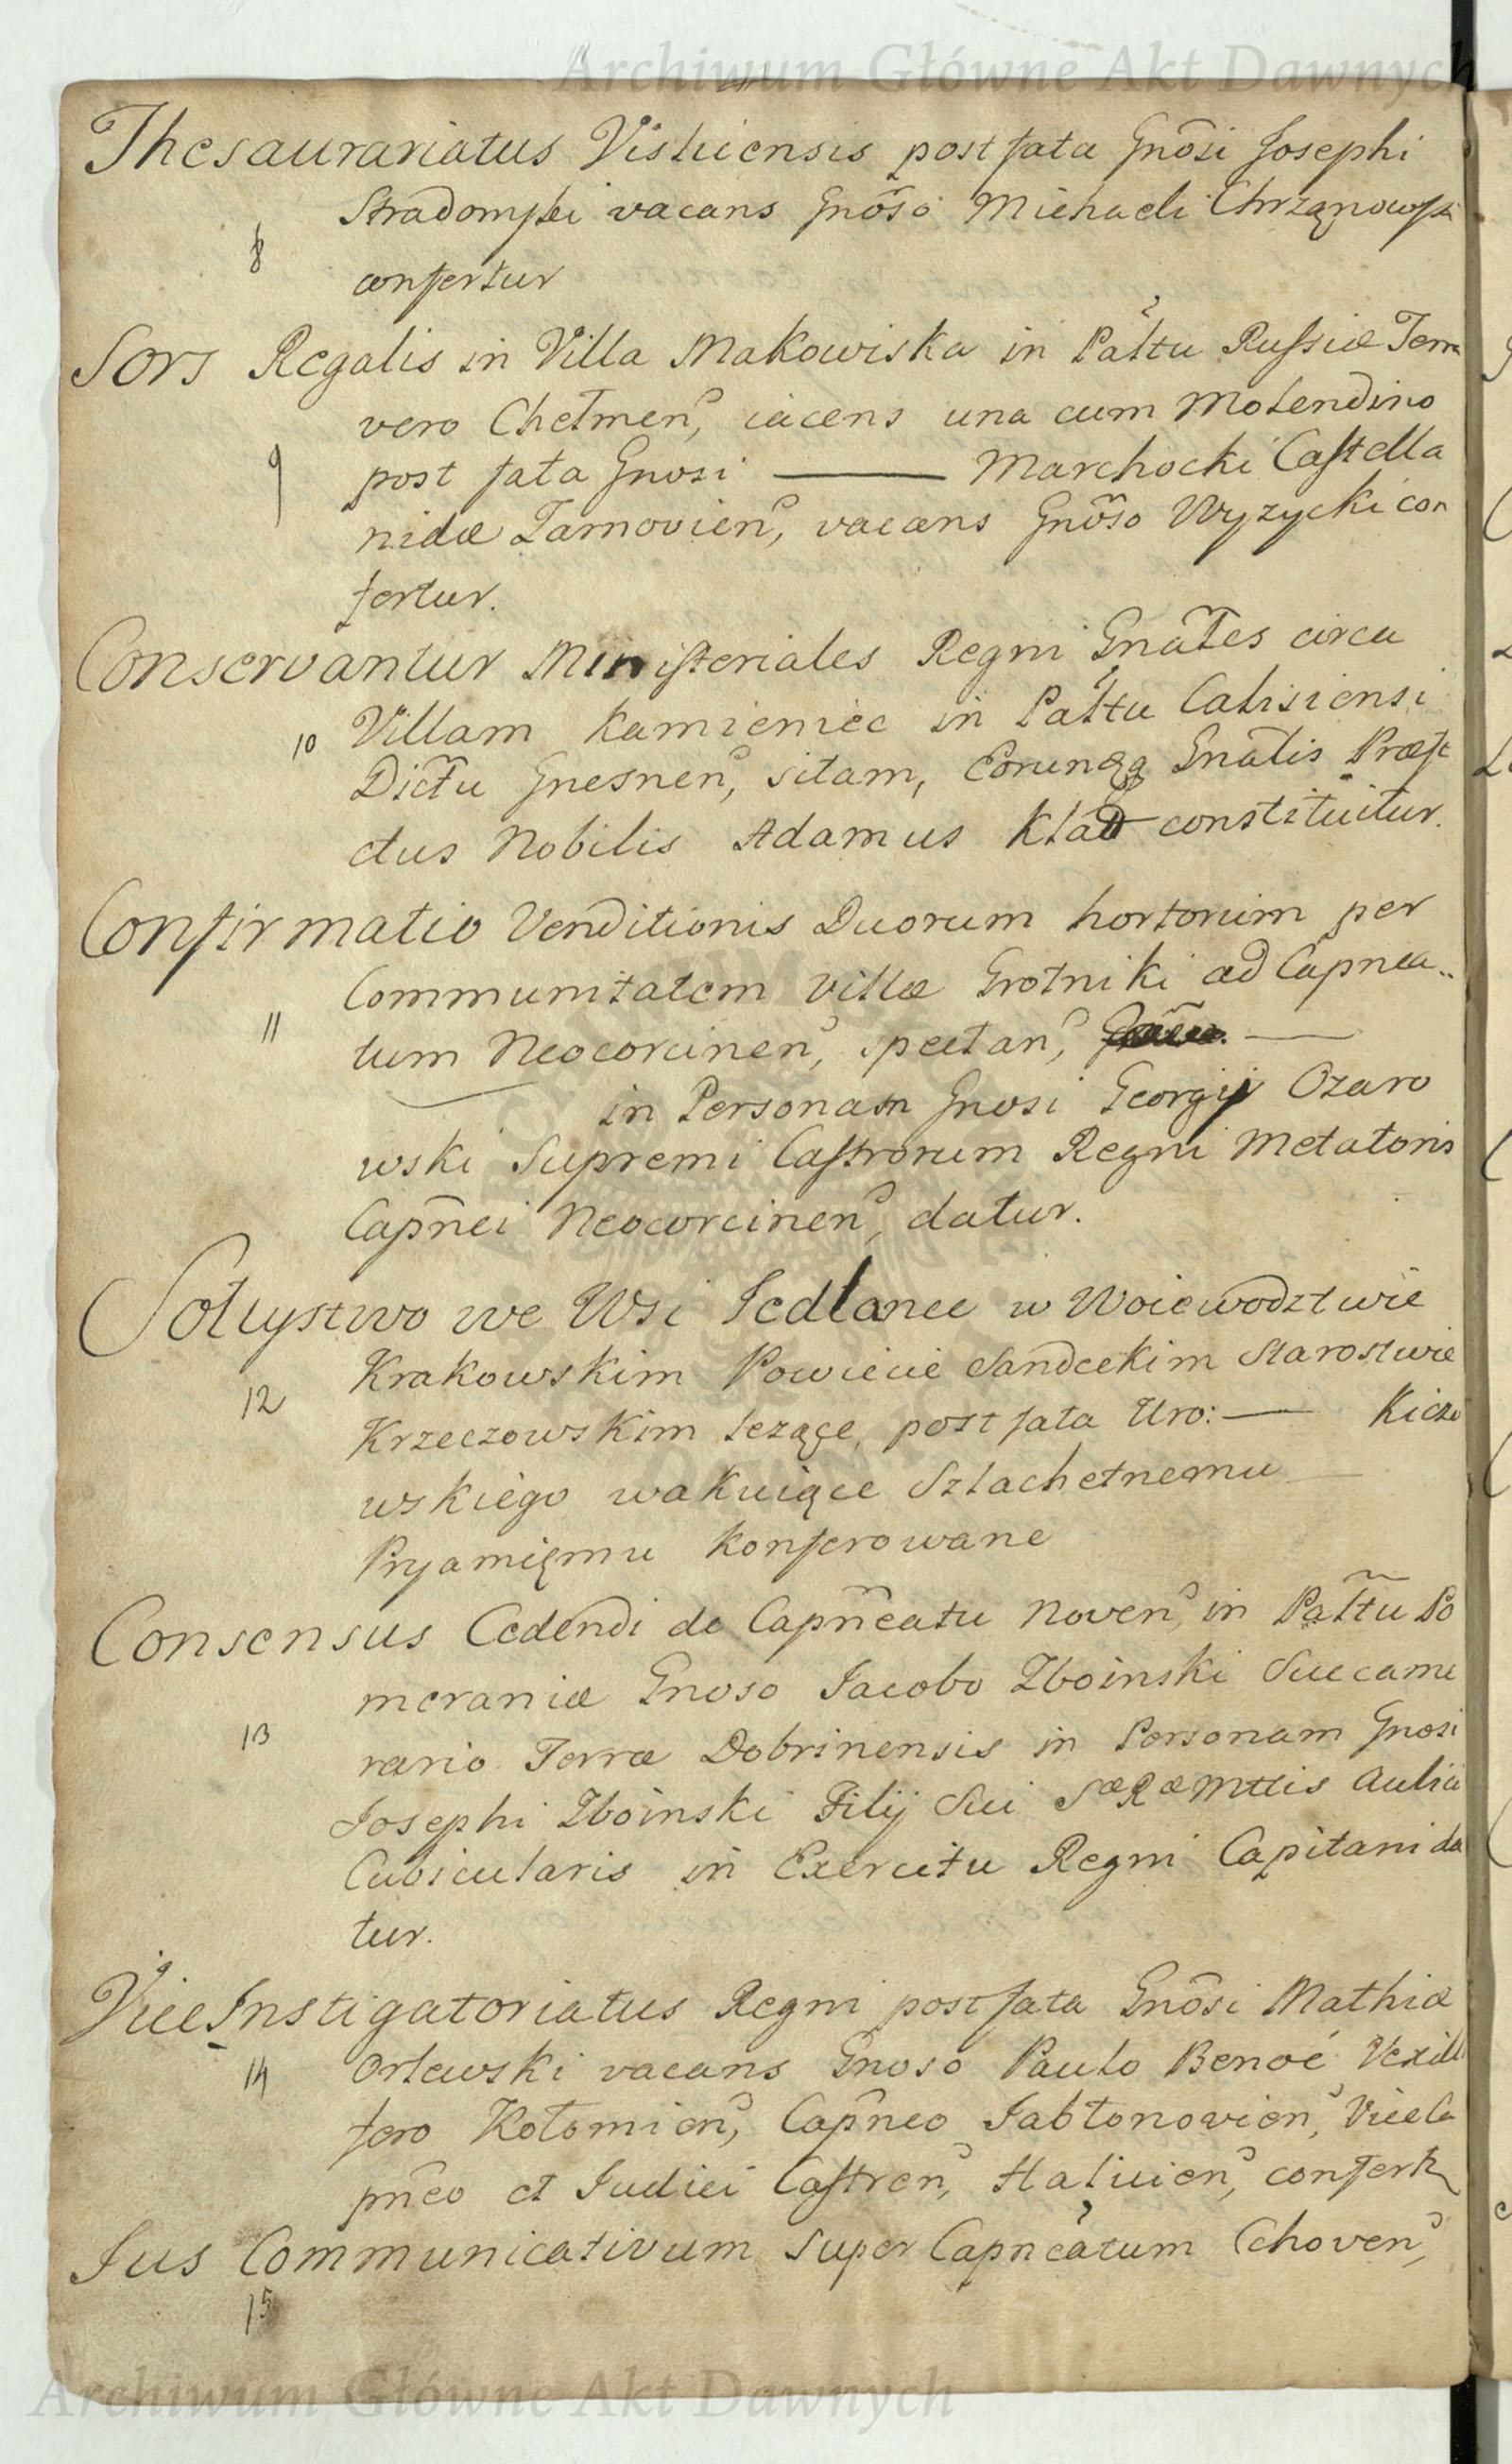 Archiwum Główne Akt Dawnych
Thesaurariatus Visliciensis post fata Gnõsi Josephi
Stradomski vacans Gnõso Michaeli Chrząnowski
8
confertur
Sors Regalis in Villa Makowiska in Pałtu Russiæ Terra
vero Chełmen, iacens una cum Molendino
9
post fata Gnosi — Marchocki Castella
nidæ Tarnovien, vacans Gnõso Wyzycki con
fertur.
Conservantur Ministeriales Regni Gnãles circa
Villam Kamieniec in Pałtu Calisiensi
10
Dictu Gnesnen, sitam, Eorunqq Gnãlis Præfe
ctus Nobilis Adamus constituitur.
Confirmatio Venditionis Duorum hortorum per
Communitatem villæ Grotniki ad Capnea..
11
tum Neocorcinen, spectan, —
in Personam Gnosi Georgij Ozaro
wski Supremi Castrorum Regni Metatoris
Capñei Neocorcinen, datur.
Sołtystwo we Wsi Jedlance w Woiewodztwie
Krakowskim Powiecie Sandeckim Starostwie
12
Krzeczowskim lezące, post fata Uro: — Kiczo
wskiego wakuiące Szlachetnemu —
Pryamięmu konferowane
Consensus Cedendi de Capñeatu Noven, in Pałtu Po
meraniæ Gnoso Jacobo Zboinski Succame
13
rario Terræ Dobrinensis in Personam Gnosi
Josephi Zboinski Filij Sui SæRæMttis Aulici
Cubicularis in Exercitu Regni Capitani da
tur.
ViceInstigatoriatus Regni post fata Gnõsi Mathiæ
14
Orlewski vacans Gnoso Paulo Benoé Vexilli
fero Kołomien, Capñeo Jabłonovien, ViceCa
pñeo et Judici Castren, Halicien, confertr
Jus Communicativum super Capneatum Cchoven,
15
Archiwum Główne Akt Dawnych